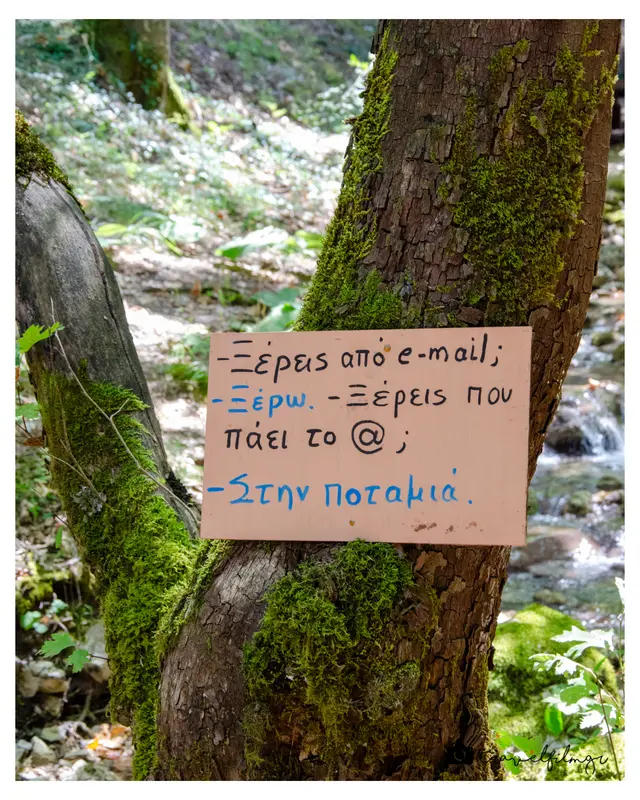 -Ξέρεις από e-mail;
-Ξέρω. -Ξέρεις που
πάει το @ ;
-Στην ποταμιά.
travelfilmgr